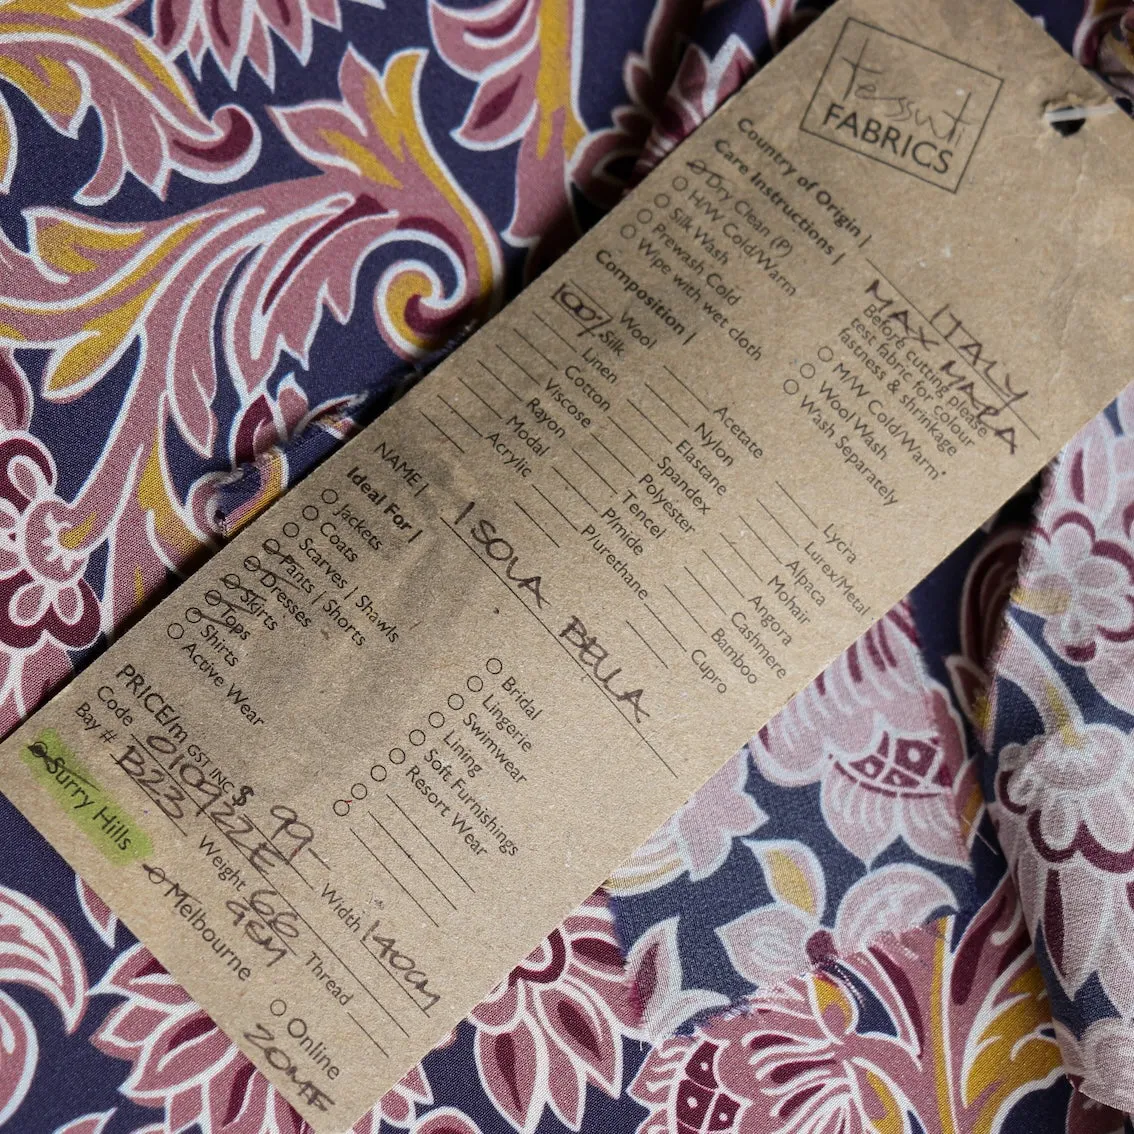 tessuti
FABRICS
Country of Origin | ITALY
Care Instructions | MAX MARA
Dry Clean (P)
H/W Cold/Warm
Silk Wash
Prewash Cold
Wipe with wet cloth
Before cutting please
test fabric for colour
fastness & shrinkage
M/W Cold/Warm°
Wool Wash
Wash Separately
Composition |
Wool
100% Silk
Linen
Cotton
Viscose
Rayon
Modal
Acrylic
Acetate
Nylon
Elastane
Spandex
Polyester
Tencel
P/mide
P/urethane
Lycra
Lurex/Metal
Alpaca
Mohair
Angora
Cashmere
Bamboo
Cupro
NAME | ISOLA BELLA
Ideal For |
Jackets
Coats
Scarves | Shawls
Pants | Shorts
Dresses
Skirts
Tops
Shirts
Active Wear
Bridal
Lingerie
Swimwear
Lining
Soft Furnishings
Resort Wear
PRICE/m GST INC $ 99-
Code 010922E Width 140cm
Bay # B23 Weight Thread
Surry Hills Melbourne Online